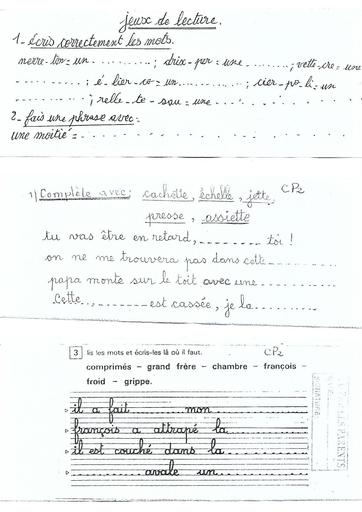 jeux de lecture.
1- écris correctement les mots.
nerre-ton=un ..........; drix-per=une ..........; vette-cre=une
..........; é-lier-co=un ..........; cier-po-li=un
..........; relle-te-sau=une ..........
2- fais une phrase avec:
une moitié = ..........
1) Complète avec: cachette, échelle, jette, CP2
presse, assiette
tu vas être en retard, ........ toi !
on ne me trouvera pas dans cette ........
papa monte sur le toit avec une ........
Cette.., ........ est cassée, je la ........
3 lis les mots et écris-les là où il faut. CP2
comprimés – grand frère – chambre – françois –
froid – grippe.
il a fait ........ mon ........
françois a attrapé la ........
il est couché dans la ........
........ avale un ........